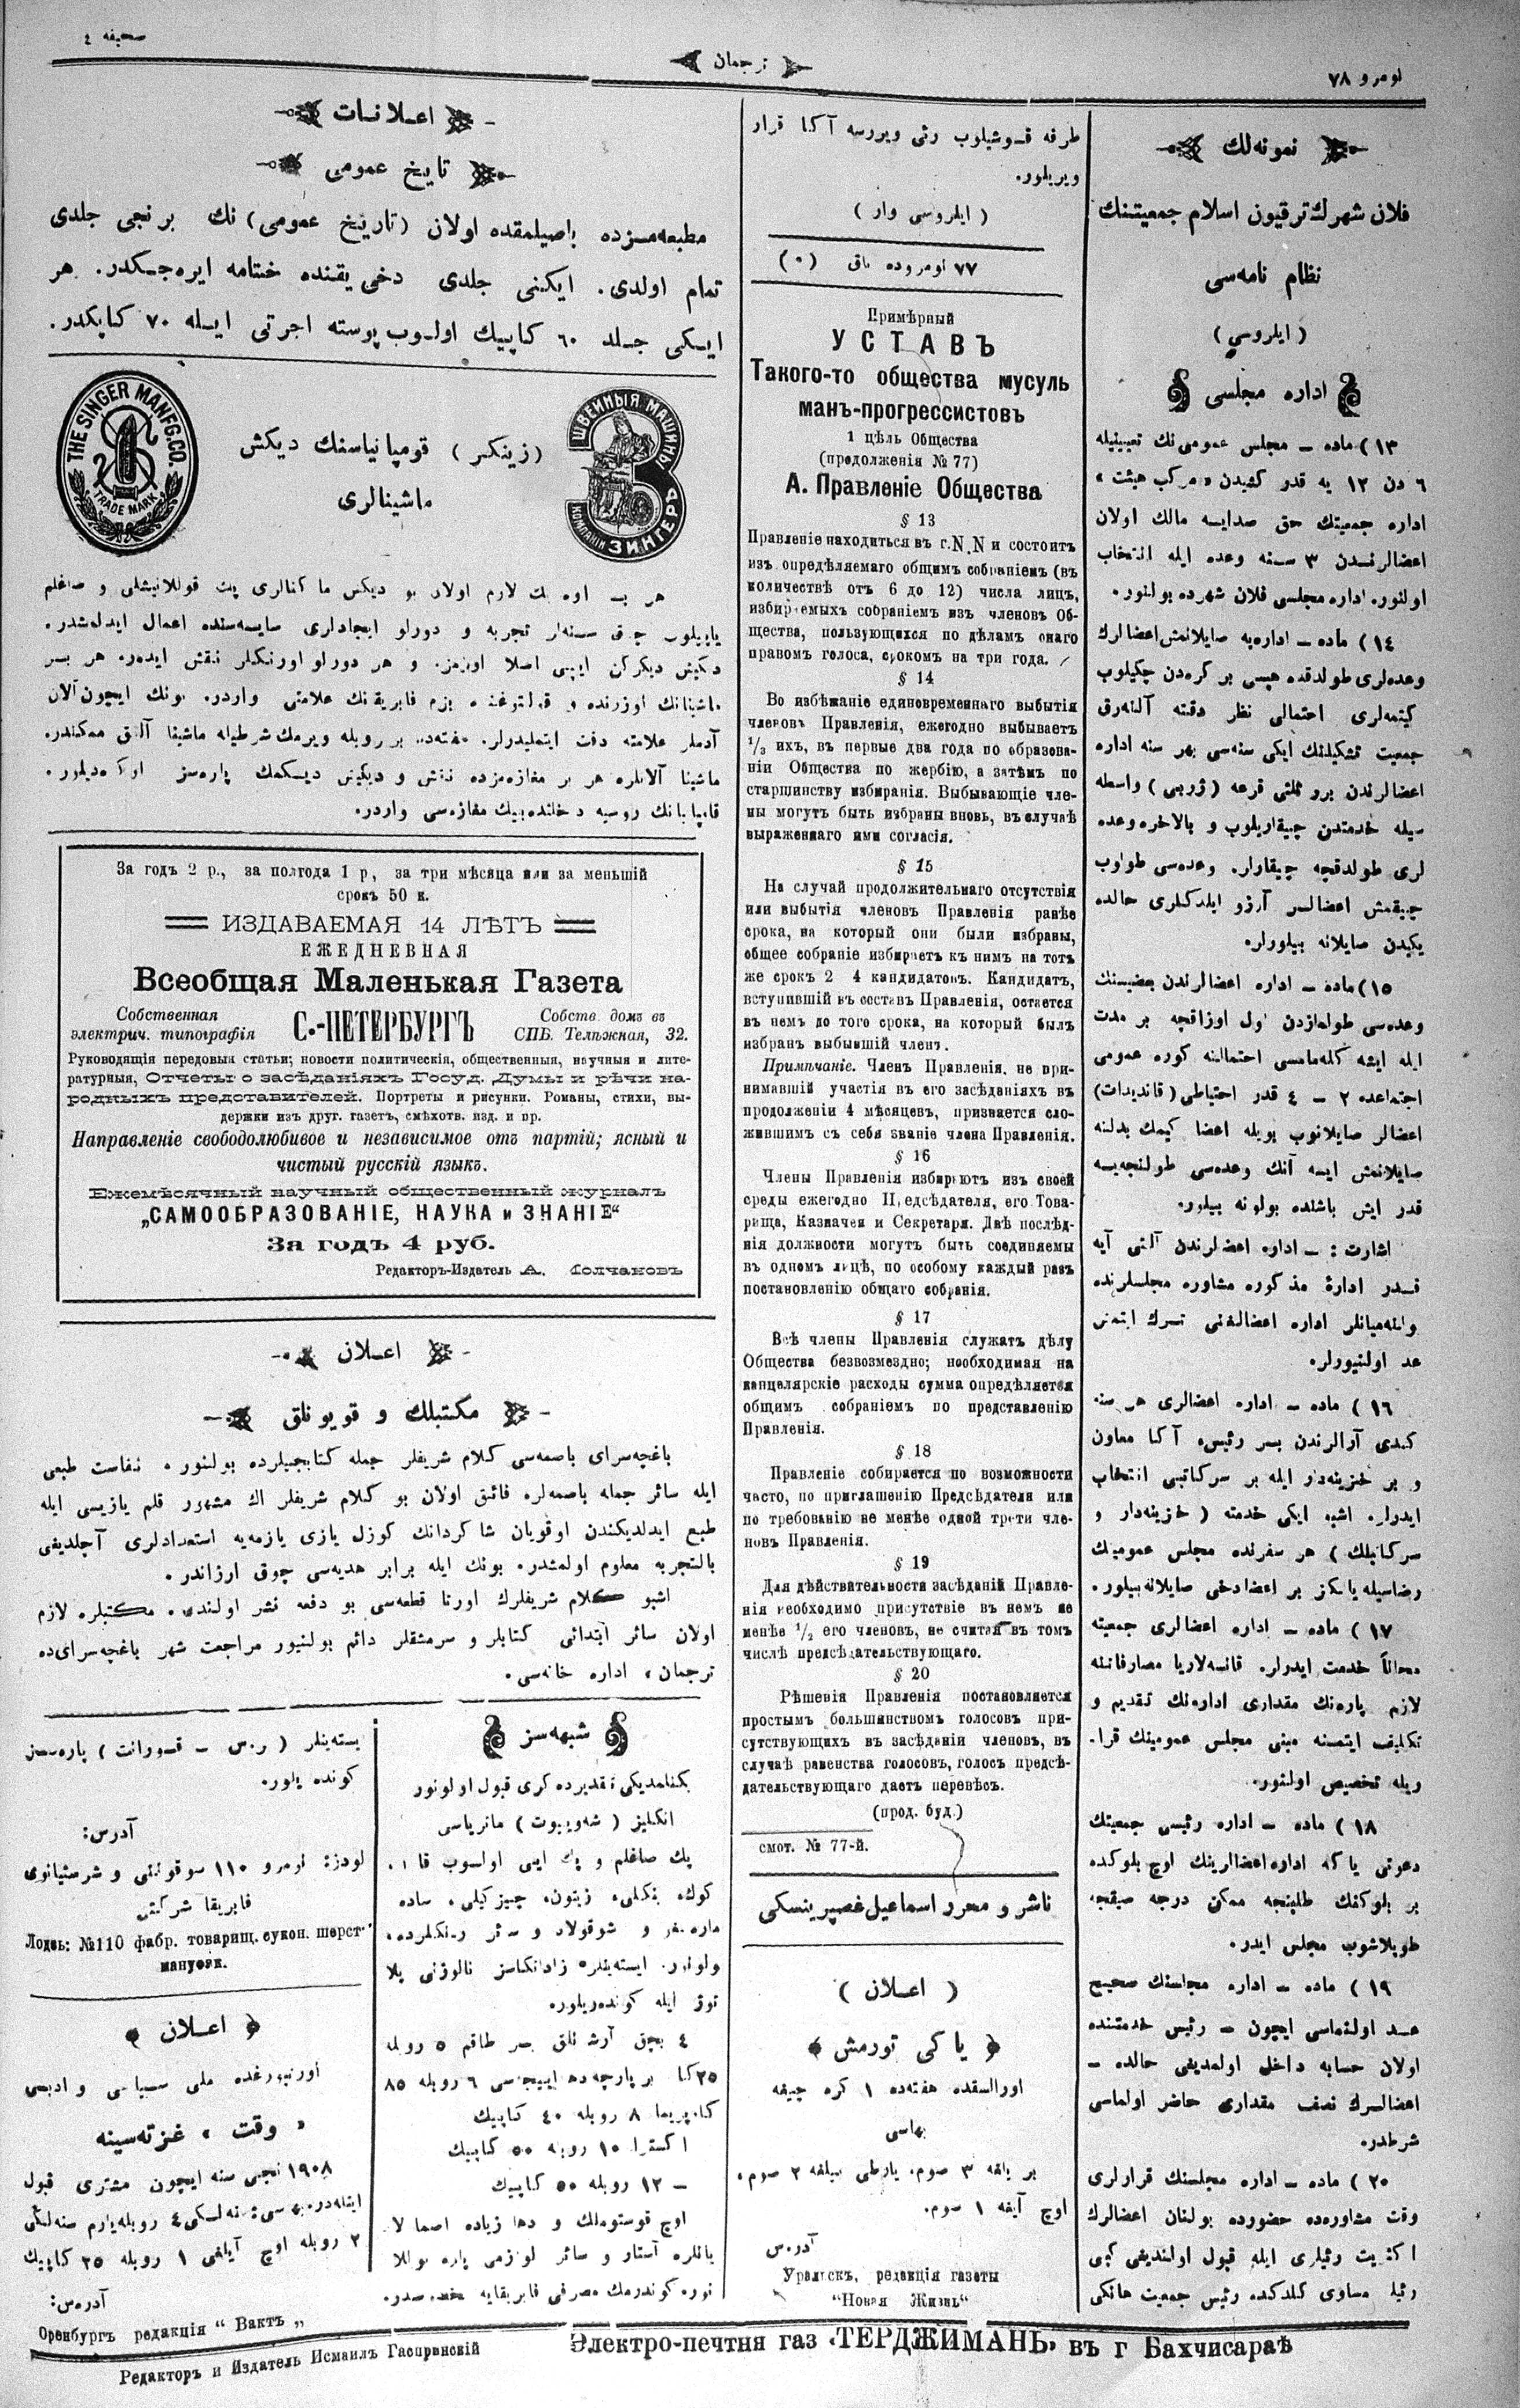 نومرو ٧٨
ترجمان
صحیفه ٤
نمونه‌لك
فلان شهرك ترقیون اسلام جمعیتنك
نظام نامه‌سی
( ایلروسی )
اداره مجلسی
١٣ ) ماده – مجلس عمومی‌نك تعیینیله
٦ دن ١٢ یه قدر كشیدن «مركب هیئت»
اداره جمعیتك حق صدایه مالك اولان
اعضالرندن ٣ سنه وعده ایله انتخاب
اولنور. اداره مجلسی فلان شهرده بولنور.
١٤ ) ماده – اداره‌یه صایلانمش اعضالرك
وعده‌لری طولدقده هپسی بر كره‌دن چكیلوب
كیتمه‌لری احتمالی نظر دقته آلنه‌رق
جمعیت تشكیلنك ایكی سنه‌سی بهر سنه اداره
اعضالرندن برو ثلثی قرعه ( ژربی ) واسطه
سیله خدمتدن چیقاریلوب و بالاخره وعده
لری طولدقچه چیقاولر. وعده‌سی طولوب
چیقمش اعضالر آرزو ایلدكلری حالده
یكیدن صایلانه بیلورلر.
١٥ ) ماده – اداره اعضالرندن بعضیسنك
وعده‌سی طولمازدن اول اوزاقچه بر مدت
ایله ایشه كلمه‌مامسی احتمالینه كوره عمومی
اجتماعده ٢ – ٤ قدر احتیاطی ( قاندیدات )
اعضالر صایلانوب بویله اعضا كیمك بدلنه
صایلانمش ایسه آنك وعده‌سی طولنجه‌یه
قدر ایش باشنده بولونه بیلور.
اشارت : – اداره اعضالرندن آلتی آیه
قدر ادارۀ مذكوره مشاوره مجلسلرنده
عد اولنیورلر.
١٦ ) ماده – اداره اعضالری هر سنه
كندی آرالرندن بر رئیس، آكا معاون
و بر خزینه‌دار ایله بر سركاتبی انتخاب
ایدرلر. اشبو ایكی خدمته ( خازینه‌دار و
سركاتبلك ) هر سفرنده مجلس عمومینك
رضاسیله یالكز بر اعضا دخی صایلانه بیلور.
١٧ ) ماده – اداره اعضالری جمعیته
مجاناً خدمت ایدرلر. قانسه‌لاریا مصارفاتنه
لازم پاره‌نك مقداری اداره‌نك تقدیم و
تكلیف ایتمسنه مبنی مجلس عمومینك قرا.
ریله تخصیص اولنور.
١٨ ) ماده – اداره رئیس جمعیتك
دعوتی یاكه اداره اعضالرینك اوچ بلوكده
بر بلوكنك طلبنجه ممكن درجه صیقجه
طوپلاشوب مجلس ایدر.
١٩ ) ماده – اداره مجلسنك صحیح
عد اولنماسی ایچون – رئیس خدمتنده
اولان حسابه داخل اولمدیغی حالده –
اعضالرك نصف مقداری حاضر اولماسی
شرطدر.
٢٠ ) ماده – اداره مجلسنك قرارلری
وقت مشاوره‌ده حضورده بولنان اعضالرك
اكثریت رئیلری ایله قبول اولندیغی كبی
رئیلر مساوی كلدكده رئیس جمعیت هانكی
طرفه قوشیلوب رئی ویررسه آكا قرار
ویریلور.
( ایلروسی وار )
٧٧ نومروده باق (٠)
Примѣрный
УСТАВЪ
Такого-то общества мусуль
манъ-прогрессистовъ
1 цѣль Общества
(продолженія № 77)
А. Правленіе Общества
§ 13
Правленіе находиться въ г. N.N и состоитъ
изъ опредѣляемаго общимъ собраніемъ (въ
количествѣ отъ 6 до 12) числа лицъ,
избираемыхъ собраніемъ изъ членовъ Об-
щества, пользующихся по дѣламъ онаго
правомъ голоса, срокомъ на три года.
§ 14
Во избѣжаніе единовременнаго выбытія
членовъ Правленія, ежегодно выбываетъ
1/3 ихъ, въ первые два года по образова-
ніи Общества по жербію, а затѣмъ по
старшинству избиранія. Выбывающіе чле-
ны могутъ быть избраны вновь, въ случаѣ
выраженнаго ими согласія.
§ 15
На случай продолжительнаго отсутствія
или выбытія членовъ Правленія ранѣе
срока, на который они были избраны,
общее собраніе избираетъ къ нимъ на тотъ
же срокъ 2 4 кандидатовъ. Кандидатъ,
вступившій въ составъ Правленія, остается
въ немъ до того срока, на который былъ
избранъ выбывшій членъ.
Примѣчаніе. Членъ Правленія, не при-
нимавшій участія въ его засѣданіяхъ въ
продолженіи 4 мѣсяцевъ, признается сло-
жившимъ съ себя званіе члена Правленія.
§ 16
Члены Правленія избираютъ изъ своей
среды ежегодно Предсѣдателя, его Това-
рища, Казначея и Секретаря. Двѣ послѣд-
нія должности могутъ быть соединяемы
въ одномъ лицѣ, по особому каждый разъ
постановленію общаго собранія.
§ 17
Всѣ члены Правленія служатъ дѣлу
Общества безвозмездно; необходимая на
канцелярскіе расходы сумма опредѣляется
общимъ собраніемъ по представленію
Правленія.
§ 18
Правленіе собирается по возможности
часто, по приглашенію Предсѣдателя или
по требованію не менѣе одной трети чле-
новъ Правленія.
§ 19
Для дѣйствительности засѣданій Правле-
нія необходимо присутствіе въ немъ не
менѣе 1/2 его членовъ, не считая въ томъ
числѣ предсѣдательствующаго.
§ 20
Рѣшенія Правленія постановляется
простымъ большинствомъ голосовъ при-
сутствующихъ въ засѣданіи членовъ, въ
случаѣ равенства голосовъ, голосъ предсѣ-
дательствующаго даетъ перевѣсъ.
(прод. буд.)
смот. № 77-й.
ناشر و محرر اسماعیل غصپرینسكی
( اعلان )
﴿ یاكی تورمش ﴾
اورالسقده هفته‌ده ١ كره چیقه
بهاسی
بر یلغه ٣ صوم، یارطی ییلغه ٢ صوم،
اوچ آیغه ١ صوم.
آدرس
Уральскъ, редакція газеты
"Новая Жизнь"
اعلانات
تاریخ عمومی
مطبعه‌مزده باصیلمقده اولان (تاریخ عمومی) نك برنجی جلدی
تمام اولدی. ایكنی جلدی دخی یقنده ختامه ایره‌جكدر. هر
ایكی جلد ٦٠ كاپیك اولوب پوسته اجرتی ایله ٧٠ كاپكدر.
THE SINGER MANFG. CO.
TRADE MARK
ШВЕЙНЫЯ МАШИНЫ
КОМПАНІИ ЗИНГЕРЪ
( زینكر ) قومپانیاسنك دیكش
ماشینالری
هر اوه لازم اولان بو دیكس ماكنالری پك قوللانیشلی و صاغلم
یاپیلوب چوق سنه‌لر تجربه و دورلو ایجادلری سایه‌سنده اعمال ایدلمشدر.
دكیش دیكركن ایپی اصلا اوزیلمز. و هر دورلو اورنكلر نقش ایدەر. هر بر
ماشینانك اوزرنده و بزم فابریقه‌نك علامتی واردر. بونك ایچون آلان
آدملر علامته دقت ایتملیدرلر. هفته‌ده بر روبله ویرمك شرطیله ماشینا آلمق ممكندر.
ماشینا آلانلره هر بر مغازه‌مزده نقش و دیكیش دیكمك پاره‌سز
روسیه داخلنده بیك مغازه‌سی واردر.
За годъ 2 р., за полгода 1 р, за три мѣсяца или за меньшій
срокъ 50 к.
ИЗДАВАЕМАЯ 14 ЛѢТЪ
ЕЖЕДНЕВНАЯ
Всеобщая Маленькая Газета
Собственная
электрич. типографія
С.-ПЕТЕРБУРГЪ
Собств. домъ въ
СПБ. Телѣжная, 32.
Руководящія передовыя статьи; новости политическія, общественныя, научныя и лите-
ратурныя, Отчеты о засѣданіяхъ Госуд. Думы и рѣчи на-
родныхъ представителей. Портреты и рисунки. Романы, стихи, вы-
держки изъ друг. газетъ, смѣхотв. изд. и пр.
Направленіе свободолюбивое и независимое отъ партій; ясный и
чистый русскій языкъ.
Ежемѣсячный научный общественный журналъ
„САМООБРАЗОВАНІЕ, НАУКА и ЗНАНІЕ“
За годъ 4 руб.
Редакторъ-Издатель А. Молчановъ
اعلان
مكتبلك و قویونلق
باغچه‌سرای باصمه‌سی كلام شریفلر جمله كتابجیلرده بولنور. نفاست طبعی
ایله سائر جمله باصمه‌لره فائق اولان بو كلام شریفلر اك مشهور قلم یازیسی ایله
طبع ایدلدیكندن اوقویان شاكردانك كوزل یازی یازمه‌یه استعدادلری آچلدیغی
بالتجربه معلوم اولمشدر. بونك ایله برابر هدیه‌سی چوق ارزاندر.
اشبو كلام شریفلرك اورتا قطعه‌سی بو دفعه نشر اولندی. مكتبلره لازم
اولان سائر ابتدائی كتابلر و سرمشقلر دائم بولنیور مراجعت شهر باغچه‌سرای‌ده
ترجمان، اداره خانه‌سی.
شبهه‌سز
بكنلمدیكی تقدیرده كری قبول اولونور
انكلیز ( شه‌ویبوت ) ماتریاسی
پك صاغلم و پك ایی اولوب
كوك، زیتون، چیزكیلی، ساده
و شوقولاد و سائر رنكلرده،
ایستەینلره زاداتكاسز نالوژنی پلا
توژ ایله كوندەریلور.
٤ بچق آرشنلق بر طاقم ٥ روبله
٢٥ كاپ بر پارچه دها ایییجه‌سی ٦ روبله ٨٥
كاپ پریما ٨ روبله ٤٠ كاپیك
اكسترا ١٠ روبله ٥٠ كاپیك
– ١٢ روبله ٥٠ كاپیك
اوچ قوستوملك و دها زیاده اصمارلا
یانلره آستار و سائر لوازمی پاره‌سز
كوندرمك مصرفی فابریقایه
ایستەینلر پاره‌سز
كونده‌یلور.
آدرس:
لودز: نومرو ١١٠ سوقونّی و شرستیانوی
فابریقا شركتی
Лодзь: №110 фабр. товарищ. сукон. шерст
мануфак.
﴿ اعلان ﴾
اورنبورغده ملی سیاسی و ادبی
« وقت » غزته‌سینه
١٩٠٨ نجی سنه ایچون مشتری قبول
ایتله‌در. بهاسی: سنه‌لكی ٤ روبله یارم سنه‌لكی
٢ روبله اوچ آیلغی ١ روبله ٢٥ كاپیك
آدرس:
Оренбургъ редакція “ Вактъ „
Редакторъ и Издатель Исмаилъ Гаспринскій
Электро-печтня газ ‹ТЕРДЖИМАНЪ› въ г Бахчисараѣ